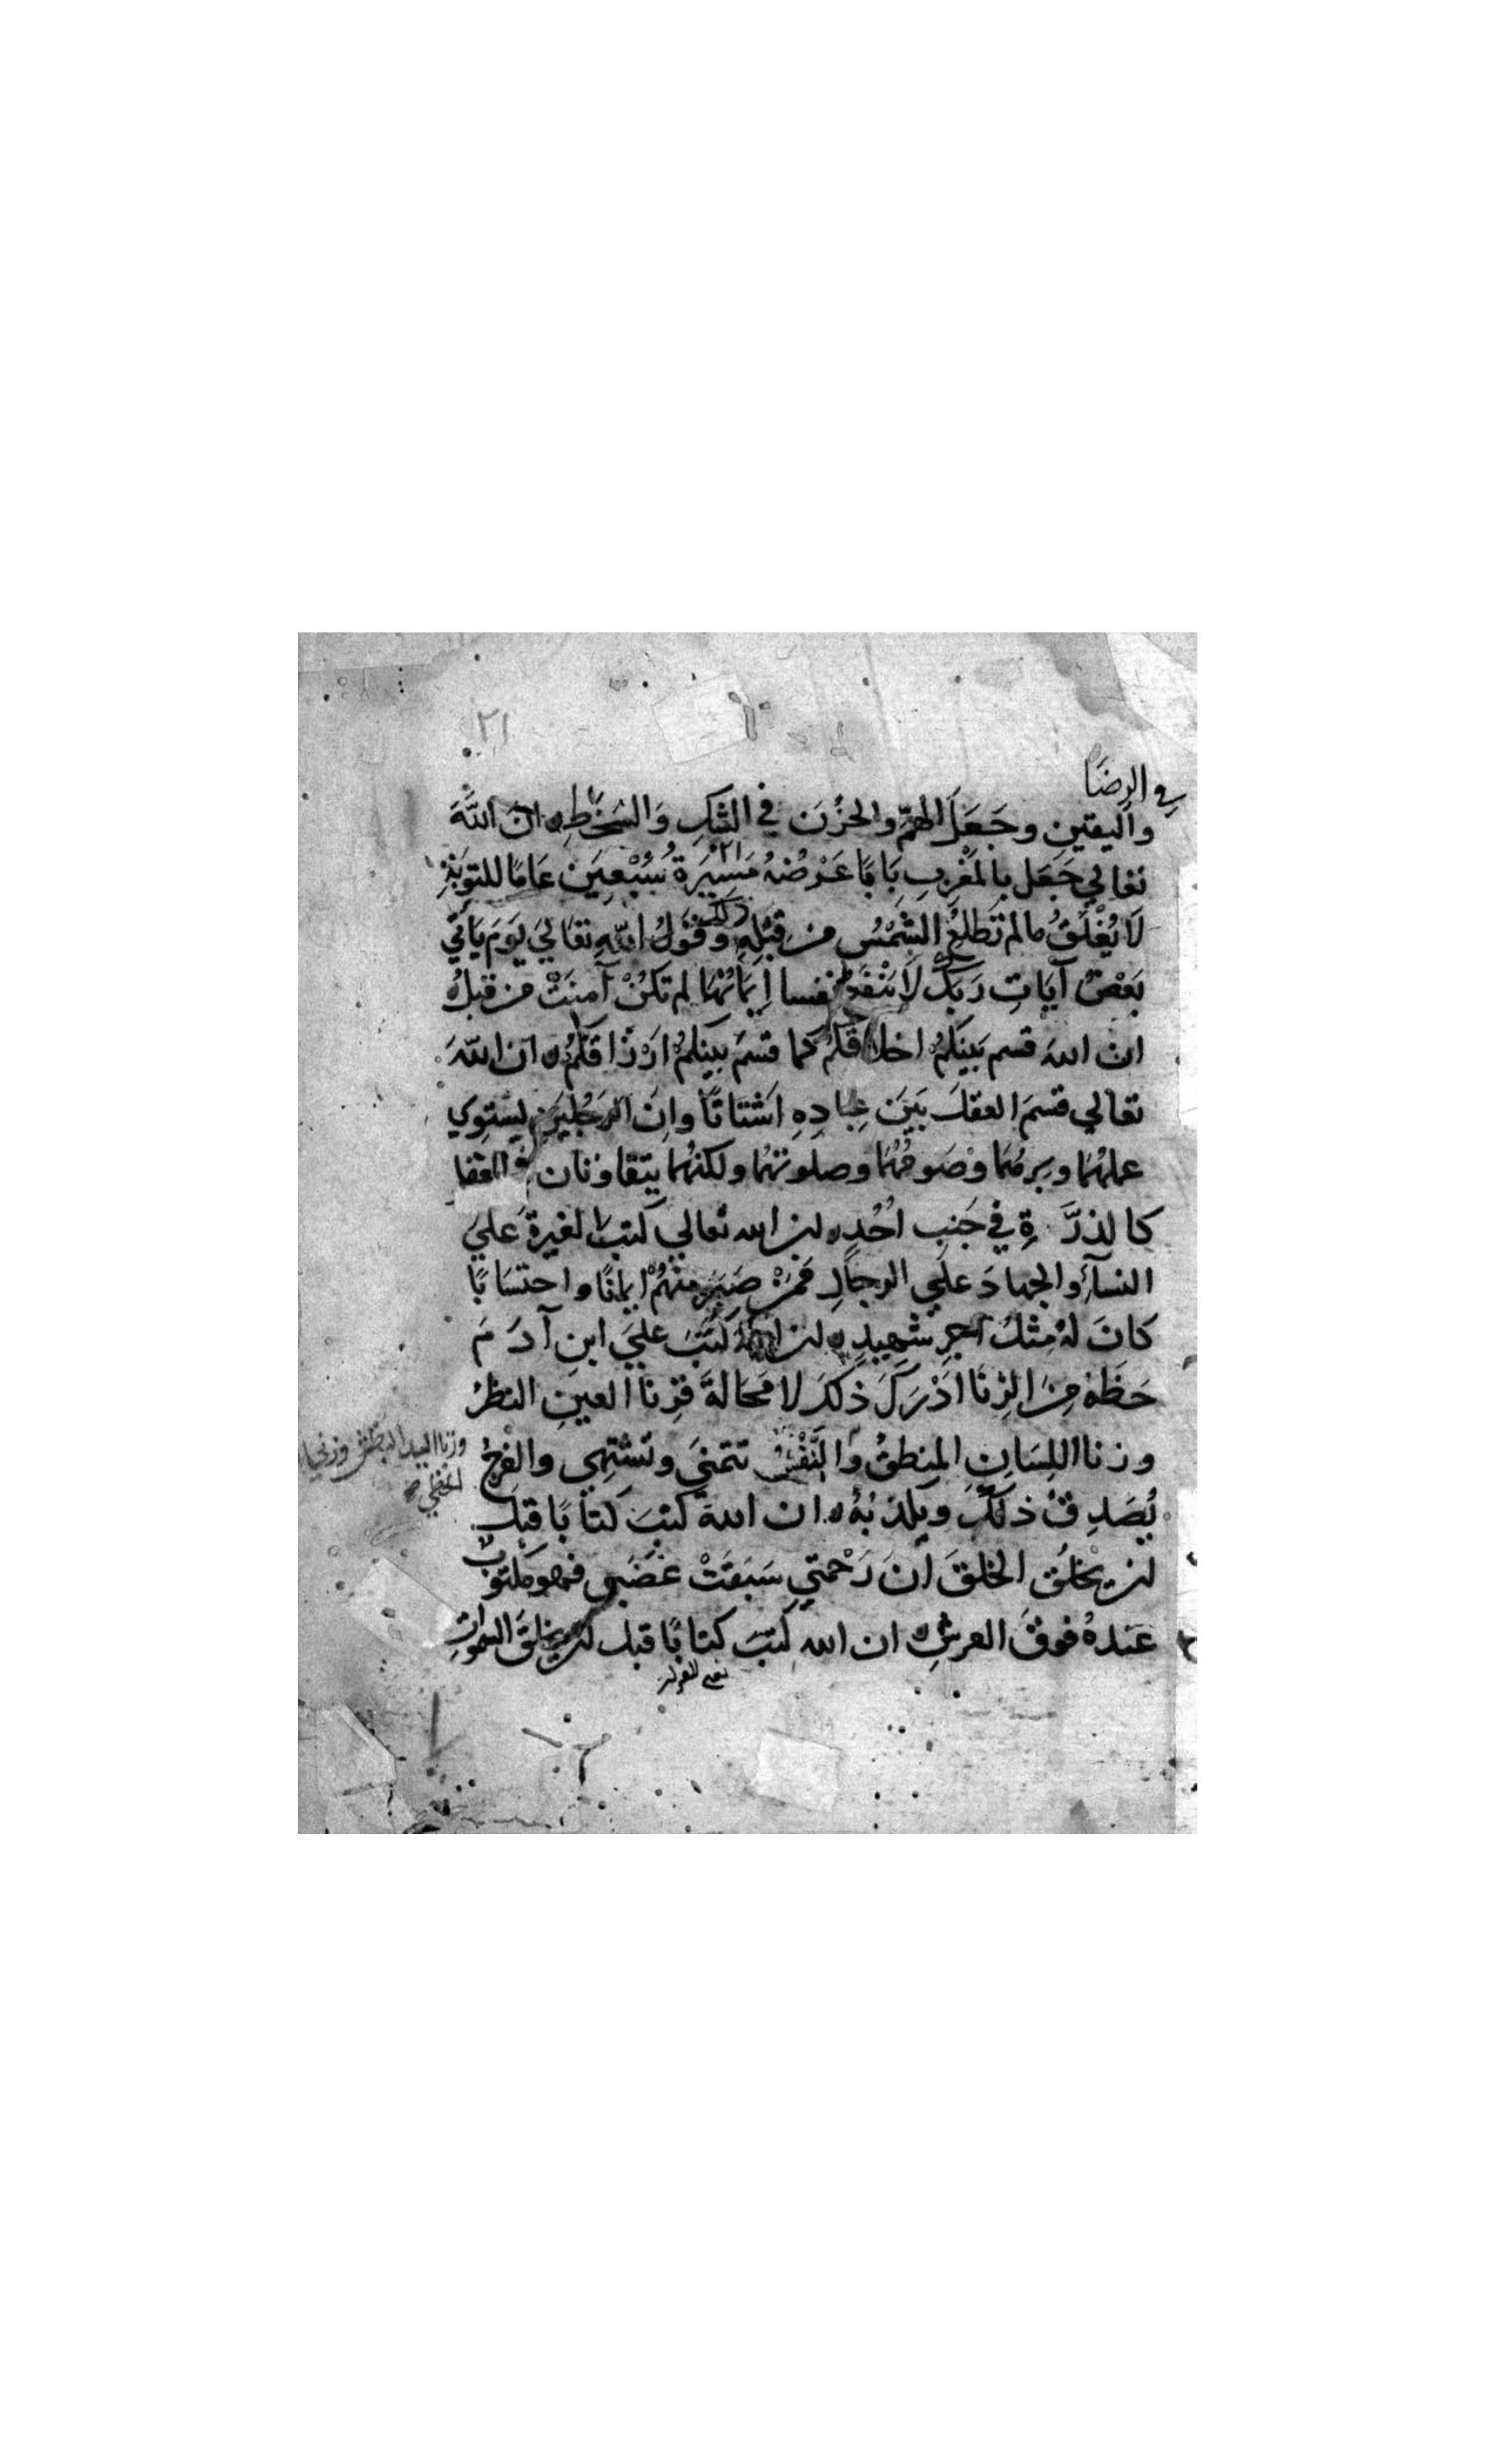 ٢١
في الرضَا
واليقينِ وجَعَلَ الهمَّ والحزُنَ في الشكِ وَالسَخَطِ ه انَ اللّٰهَ
تعالي جَعَل بالمَغْربِ بَابًا عَرْضُهُ مَسِيْرَة سَبْعِيَن عَامًا للتوبَةِ
لَا يُغْلَقُ مالم تَطلعُ الشَمْسُ من قِبَلِهِ وذلك قَوْلُ اللّٰهِ تعَالَي يَوَمَ يَاتي
بَعْضُ آيَاتِ رَبكَ لَا يَنْفَعُ نفسا اِيَمَانُهَا لم تكُنْ آمنَتْ من قبلُ
ان اللهَ قسم بَينَكمُ اخلاقكمُ كما قسَمَ بينكمُ ارَزاقكُمُ ه ان اللّٰهَ
تعالي قسمَ العقلَ بَيَن عِبادِهِ اَشتاتاً وانَ الرَجُلَينِ ليستوِي
عملهُمَا وبِرهُمَا وصَومُهُمَا وصلوتهُما ولكنهُما يتقاوتان في العقل
كالذرَّةِ في جَنبِ اُحُدِ ه ان الله تعالي كتبَ الغيرةَ عليَ
النساَءِ والجهادَ علَي الرجالِ فمن صَبَرَ منهُمْ ايمانًا واحتسَابًا
كانَ لهُ مثلُ اَجرِ شهيدِ ه ان اللهَ كَتَبَ عليَ ابنِ آدَمَ
حَظهُ مِنَ الزنَا ادْرَكَ ذلكَ لا مَحَالةَ فزِنا العينِ النظرُ
وزنا اللِسَانِ المنِطقُ وَالنَّفْسُ تتمنيَ وتَشْتهِي والفرجُ
وزنا اليد البطش وزني
الخطي صح
يُصَدِقُ ذلكَ ويكذبُهُ ه ان اللهَ كتبَ كتابًا قبلَ
ان يخلُقَ الخلقَ اَنَ رَحْمَتي سَبَقَتْ غضَبي فهو مكتوبٌ
عندهُ فوقَ العرشِ ه ان الله كتبَ كتابًا قبل ان يخلقَ السمواتِ